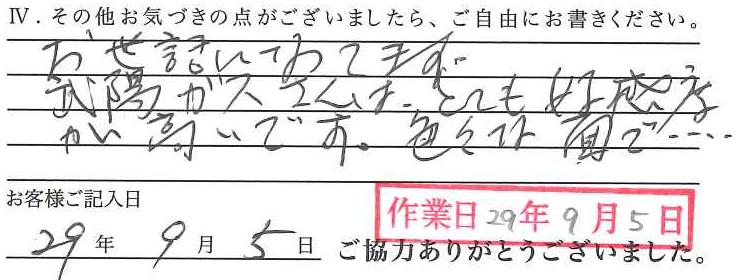 Ⅳ．その他お気づきの点がございましたら、ご自由にお書きください。
お世話になってます。
武陽ガスさんは、とても好感度
が高いです。色々な面で……
お客様ご記入日
作業日 29年 9月 5日
29年 9月 5日 ご協力ありがとうございました。